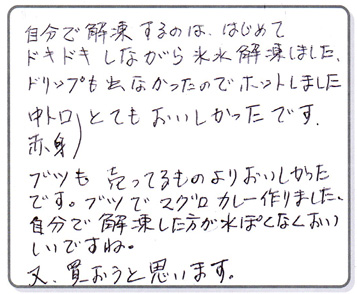 自分で解凍するのは、はじめて
ドキドキしながら氷水解凍しました、
ドリップも出なかったのでホントしました
中トロ
赤身
とてもおいしかったです.
ブツも売ってるものよりおいしかった
です。ブツでマグロカレー作りました、
自分で解凍した方が水ぽくなくおい
しいですね。
又、買おうと思います。